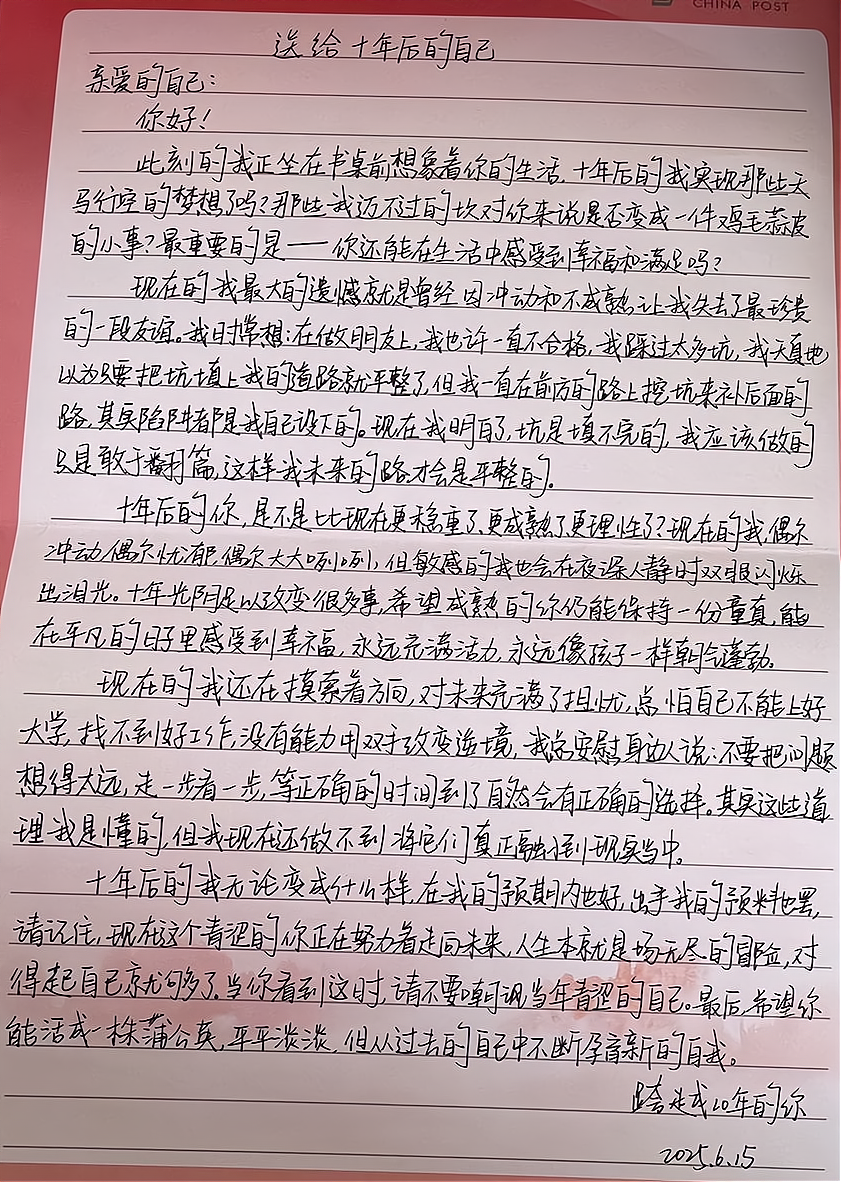 CHINA POST
送给十年后的自己
亲爱的自己:
你好!
此刻的我正坐在书桌前想象着你的生活,十年后的我实现那些天
马行空的梦想了吗?那些我迈不过的坎对你来说是否变成一件鸡毛蒜皮
的小事?最重要的是——你还能在生活中感受到幸福和满足吗?
现在的我最大的遗憾就是曾经因冲动和不成熟让我失去了最珍贵
的一段友谊。我时常想:在做朋友上,我也许一直不合格,我踩过太多坑,我天真地
以为只要把坑填上我的道路就平整了,但我一直在前方的路上挖坑来补后面的
路,其实陷阱都是我自己设下的。现在我明白了,坑是填不完的,我应该做的
只是敢于翻篇,这样我未来的路才会是平整的。
十年后的你,是不是比现在更稳重了,更成熟了更理性了?现在的我,偶尔
冲动,偶尔忧郁,偶尔大大咧咧,但敏感的我也会在夜深人静时双眼闪烁
出泪光。十年光阴足以改变很多事,希望成熟的你仍能保持一份童真,能
在平凡的日子里感受到幸福,永远充满活力,永远像孩子一样朝气蓬勃。
现在的我还在摸索着方向,对未来充满了担忧,总怕自己不能上好
大学,找不到好工作,没有能力用双手改变逆境,我常安慰身边人说:不要把问题
想得太远,走一步看一步,等正确的时间到了自然会有正确的选择。其实这些道
理我是懂的,但我现在还做不到将它们真正融到现实当中。
十年后的我无论变成什么样,在我的预期内也好,出乎我的预料也罢,
请记住,现在这个青涩的你正在努力着走向未来,人生本就是场无尽的冒险,对
得起自己就够了。当你看到这时,请不要嘲讽当年青涩的自己。最后,希望你
能活成一株蒲公英,平平淡淡,但从过去的自己中不断孕育新的自我。
跨越20年的你
2025.6.15